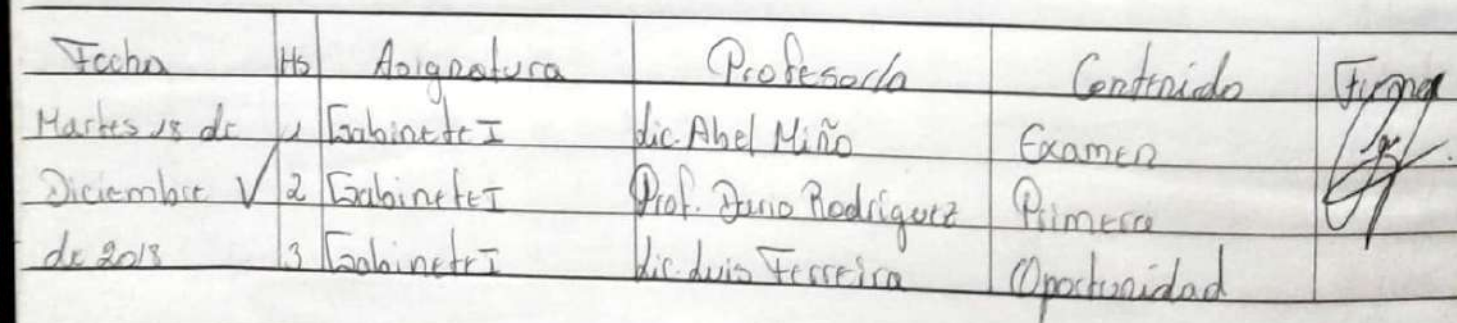 Fecha Hs Asignatura Profesor/a Contenido Firma
Martes 18 de 1 Gabinete I Lic. Abel Miño Examen
Diciembre 2 Gabinete I Prof. Dario Rodriguez Primera
de 2018 3 Gabinete I Lic. Luis Ferreira Oportunidad